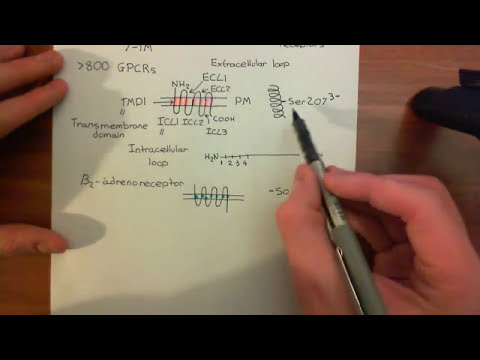 7-TM receptors
>800 GPCRs Extracellular loop
NH2 ECL1
ECL2
TMD1 PM -Ser207 3-
COOH
Transmembrane ICL1 ICL2
domain ICL3
Intracellular
loop H2N
1 2 3 4
β2-adrenoreceptor -50